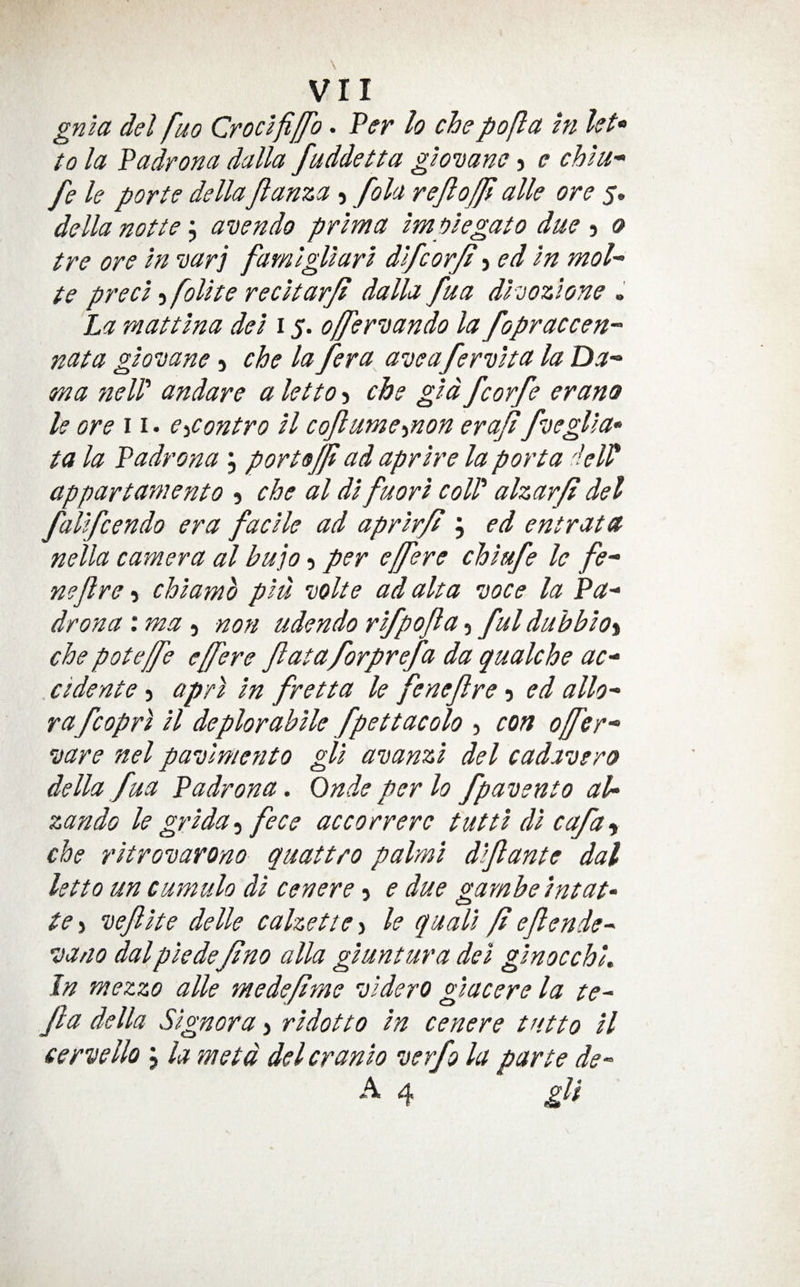 VII
gnia del ſuo Crocifiſſo. Per lo che poſta in let-
to la Padrona dalla ſuddetta giovane, e chiu-
ſe le porte della ſtanza, ſola reſtoſſi alle ore 5.
della notte; avendo prima impiegato due, o
tre ore in varj famigliari diſcorſi, ed in mol-
te preci, ſolite recitarſi dalla ſua divozione.
La mattina dei 15. oſſervando la ſopraccen-
nata giovane, che la ſera avea ſervita la Da-
ma nell' andare a letto, che già ſcorſe erano
le ore 11. e, contro il coſtume, non eraſi ſveglia-
ta la Padrona; portoſſi ad aprire la porta dell'
appartamento, che al di fuori coll' alzarſi del
ſaliſcendo era facile ad aprirſi; ed entrata
nella camera al bujo, per eſſere chiuſe le fe-
neſtre, chiamò più volte ad alta voce la Pa-
drona: ma, non udendo riſpoſta, ſul dubbio,
che poteſſe eſſere ſtata ſorpreſa da qualche ac-
cidente, aprì in fretta le feneſtre, ed allo-
ra ſcoprì il deplorabile ſpettacolo, con oſſer-
vare nel pavimento gli avanzi del cadavero
della ſua Padrona. Onde per lo ſpavento al-
zando le grida, fece accorrere tutti di caſa,
che ritrovarono quattro palmi diſtante dal
letto un cumulo di cenere, e due gambe intat-
te, veſtite delle calzette, le quali ſi eſtende-
vano dal piede ſino alla giuntura dei ginocchi.
In mezzo alle medeſime videro giacere la te-
ſta della Signora, ridotto in cenere tutto il
cervello; la metà del cranio verſo la parte de-
A 4 gli